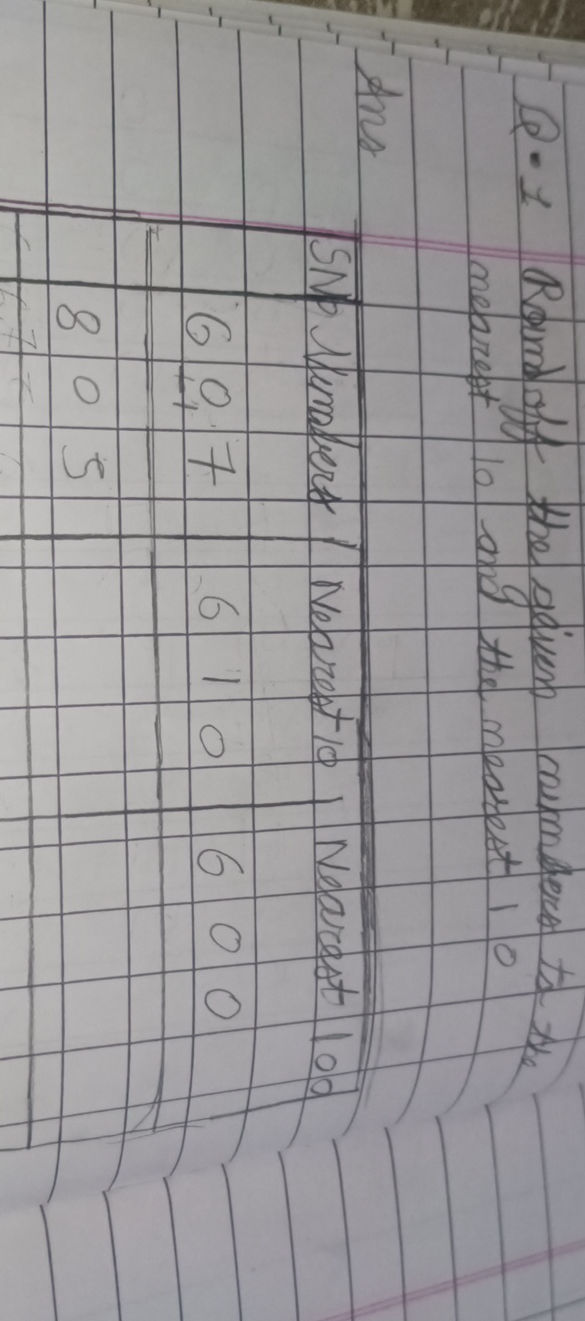 Q-1 Round off the given numbers to the
nearest 10 and the nearest 10
Ans
SNo Numbers Nearest 10 Nearest 100
607 610 600
805